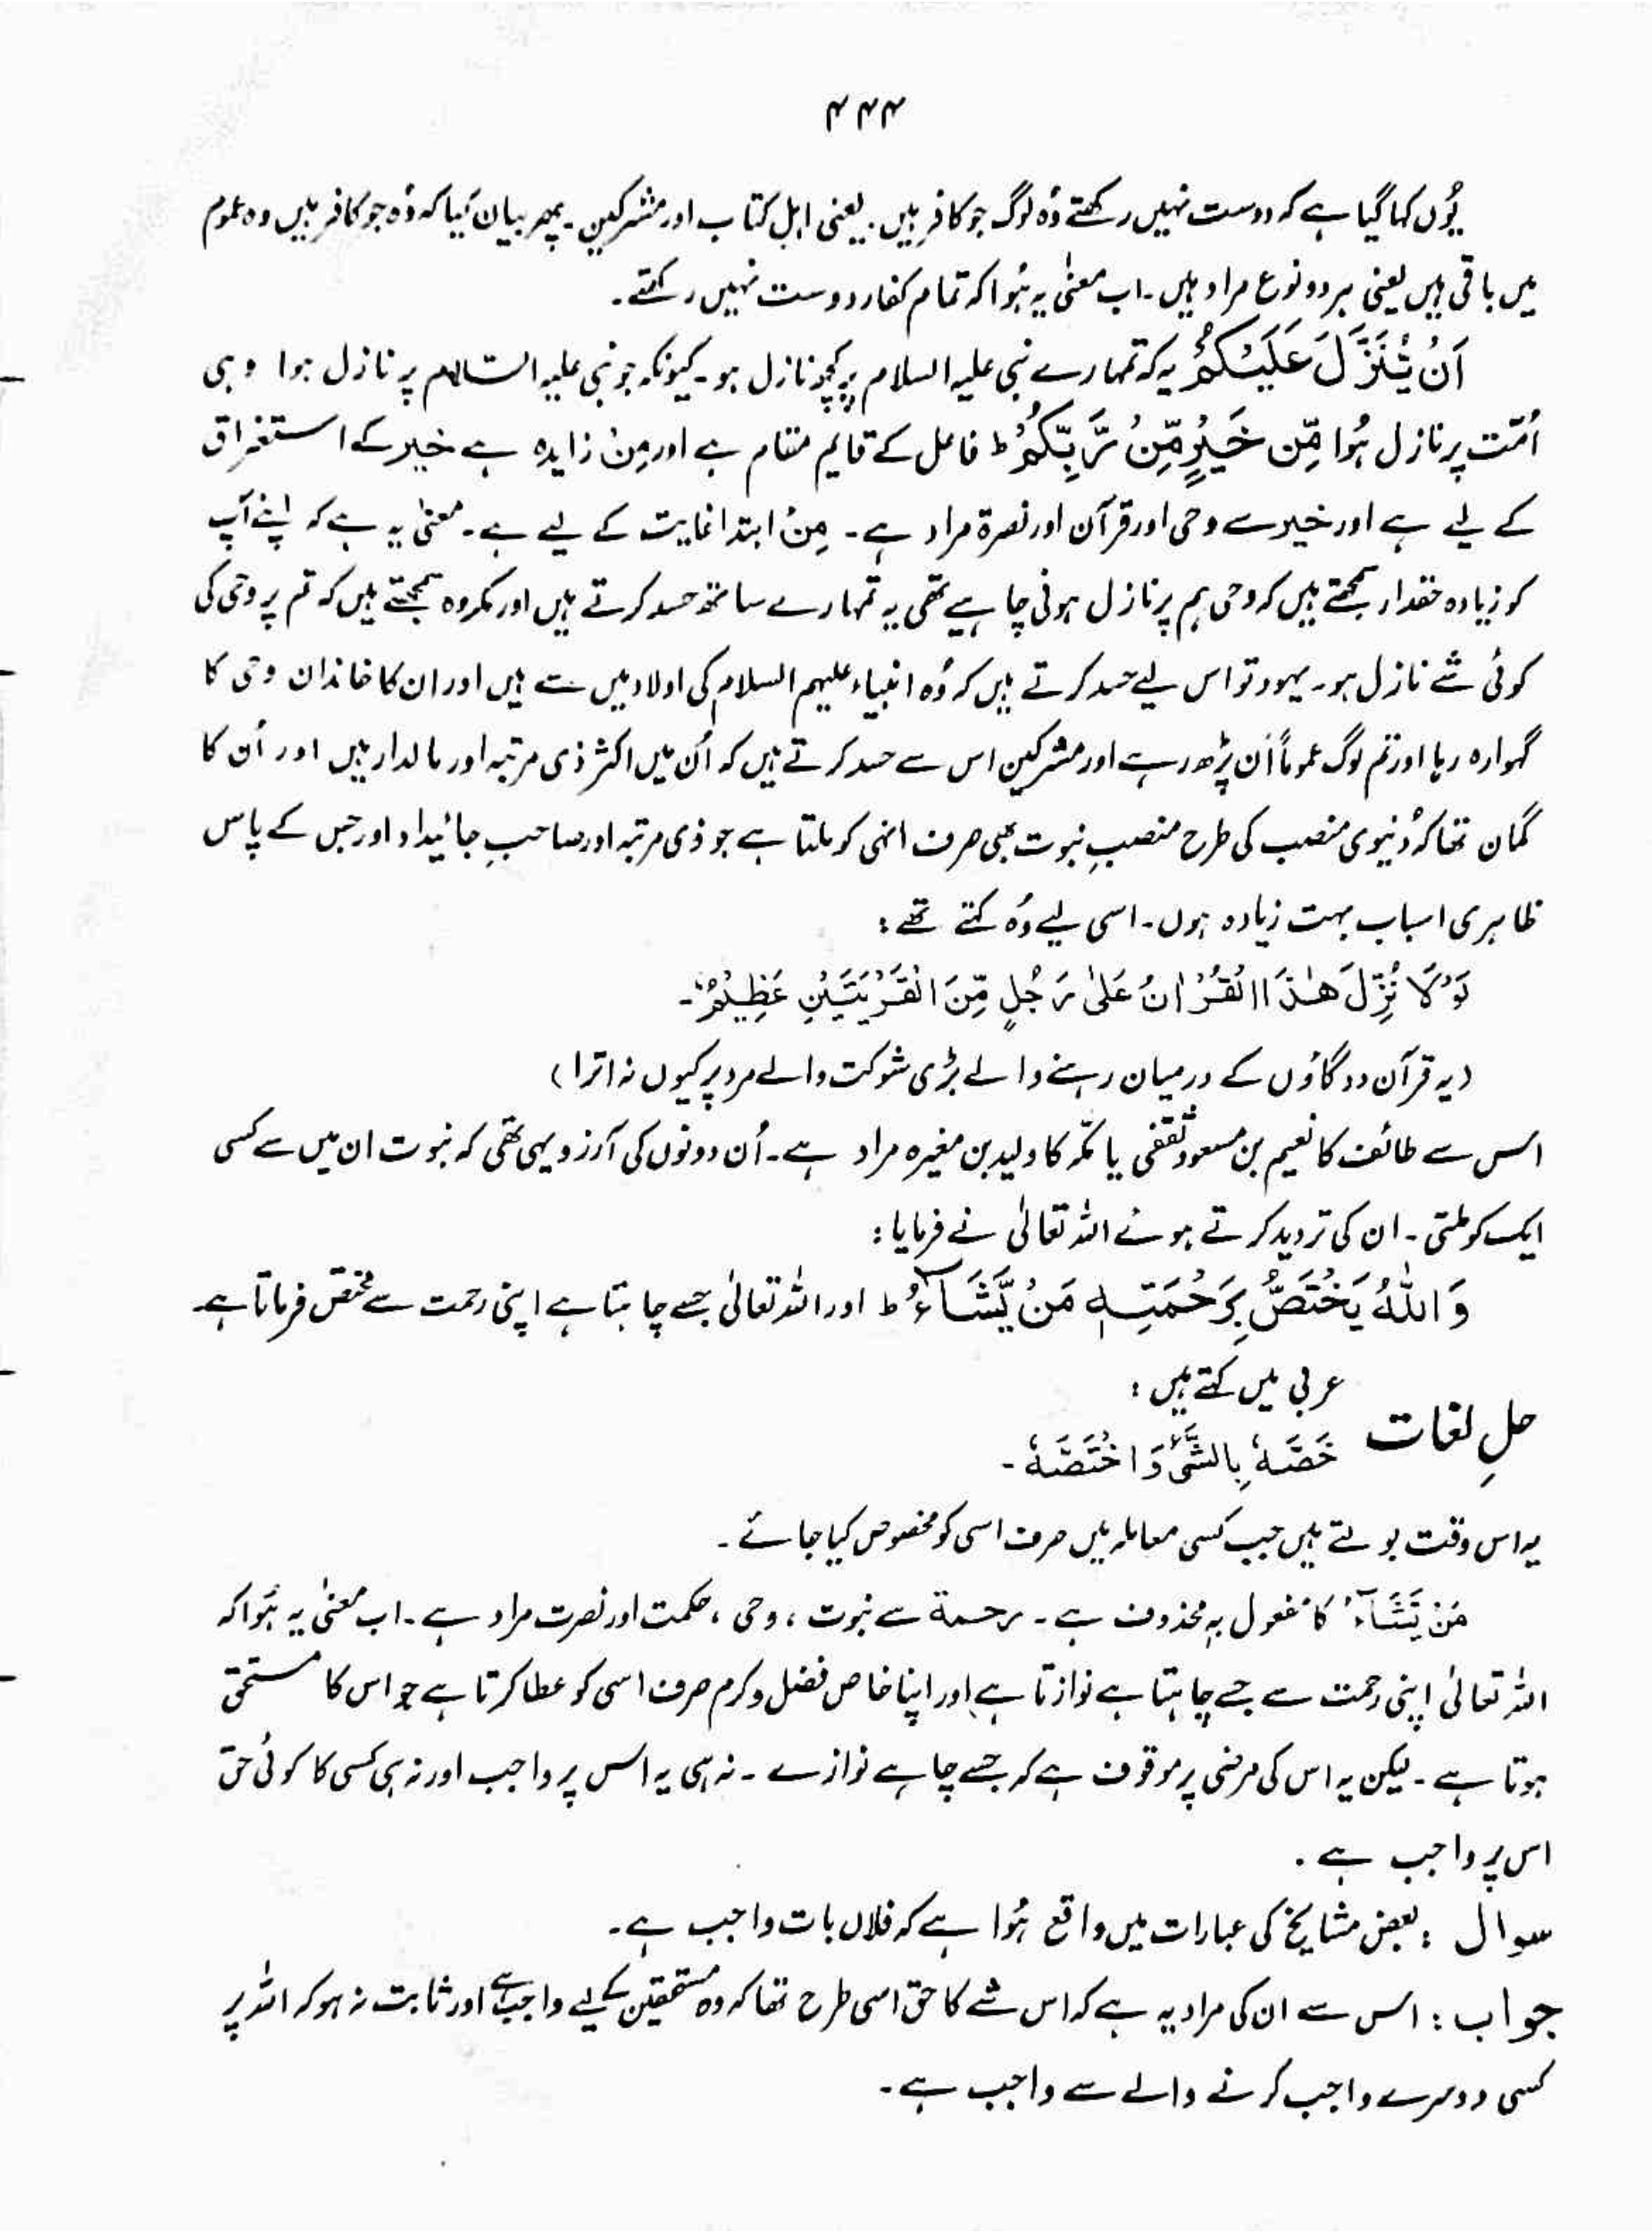 ۴۴۴
یُوں کہا گیا ہے کہ دوست نہیں رکھتے وُہ لوگ جو کافر ہیں۔ یعنی اہل کتاب اور مشرکین۔ پھر بیان کیا کہ وُہ جو کافر ہیں وہ عموم
میں باقی ہیں یعنی ہر دو نوع مراد ہیں۔ اب معنیٰ یہ ہُوا کہ تمام کفار دوست نہیں رکھتے۔
اَنْ یُّنَزَّلَ عَلَیْکُمْ یہ کہ تمہارے نبی علیہ السلام پر کچھ نازل ہو۔ کیونکہ جو نبی علیہ السّلام پر نازل ہوا وہی
اُمّت پر نازل ہُوا مِّنْ خَیْرٍ مِّنْ رَّبِّکُمْ ط فاعل کے قایم مقام ہے اور مِنْ زایدہ ہے خیر کے استغراق
کے لیے ہے اور خیر سے وحی اور قرآن اور نصرۃ مراد ہے۔ مِنْ ابتدا غایت کے لیے ہے۔ معنیٰ یہ ہے کہ اپنے آپ
کو زیادہ حقدار سمجھتے ہیں کہ وحی ہم پر نازل ہونی چاہیے تھی یہ تمہارے ساتھ حسد کرتے ہیں اور مکروہ سمجھتے ہیں کہ تم پر وحی کی
کوئی شے نازل ہو۔ یہود تو اس لیے حسد کرتے ہیں کہ وُہ انبیاء علیہم السلام کی اولاد میں سے ہیں اور ان کا خاندان وحی کا
گہوارہ رہا اور تم لوگ عموماً اَن پڑھ رہے اور مشرکین اس سے حسد کرتے ہیں کہ اُن میں اکثر ذی مرتبہ اور مالدار ہیں اور اُن کا
گمان تھا کہ دُنیوی منصب کی طرح منصبِ نبوت بھی صرف انہی کو ملتا ہے جو ذی مرتبہ اور صاحبِ جائیداد اور جس کے پاس
ظاہری اسباب بہت زیادہ ہوں۔ اسی لیے وُہ کہتے تھے:
لَوْلَا نُزِّلَ ھٰذَا الْقُرْاٰنُ عَلٰی رَجُلٍ مِّنَ الْقَرْیَتَیْنِ عَظِیْمٌ۔
(یہ قرآن دو گاؤں کے درمیان رہنے والے بڑی شوکت والے مرد پر کیوں نہ اترا)
اس سے طائف کا نعیم بن مسعود ثقفی یا مکّہ کا ولید بن مغیرہ مراد ہے۔ اُن دونوں کی آرزو یہی تھی کہ نبوت ان میں سے کسی
ایک کو ملتی۔ ان کی تردید کرتے ہوئے اللہ تعالیٰ نے فرمایا:
وَاللّٰہُ یَخْتَصُّ بِرَحْمَتِہٖ مَنْ یَّشَآءُ ط اور اللہ تعالیٰ جسے چاہتا ہے اپنی رحمت سے مختص فرماتا ہے۔
عربی میں کہتے ہیں:
حلِ لغات
خَصَّہٗ بِالشَّیْءِ وَاخْتَصَّہٗ۔
یہ اس وقت بولتے ہیں جب کسی معاملہ میں صرف اسی کو مخصوص کیا جائے۔
مَنْ یَّشَآءُ کا مفعول بہٖ محذوف ہے۔ رحمۃ سے نبوت، وحی، حکمت اور نصرت مراد ہے۔ اب معنیٰ یہ ہُوا کہ
اللہ تعالیٰ اپنی رحمت سے جسے چاہتا ہے نوازتا ہے اور اپنا خاص فضل و کرم صرف اسی کو عطا کرتا ہے جو اس کا مستحق
ہوتا ہے۔ لیکن یہ اس کی مرضی پر موقوف ہے کہ جسے چاہے نوازے۔ نہ ہی یہ اس پر واجب اور نہ ہی کسی کا کوئی حق
اس پر واجب ہے۔
سوال : بعض مشایخ کی عبارات میں واقع ہُوا ہے کہ فلاں بات واجب ہے۔
جواب : اس سے ان کی مراد یہ ہے کہ اس شے کا حق اسی طرح تھا کہ وہ مستحقین کے لیے واجب ہے اور ثابت نہ ہو کہ اللہ پر
کسی دوسرے واجب کرنے والے سے واجب ہے۔